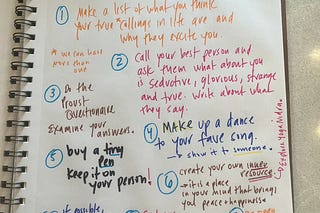 ① Make a list of what you think
your true "callings in life are and
why they excite you.
* we can have
more than
one
② Call your best person and
ask them what about you
is seductive, glorious, strange
and true. Write about what
they say.
③ Do the
Proust
Questionaire
Examine your
answers.
④ Make up a dance
to your fave song.
→ show it to someone.
⑤ buy a tiny
pen
keep it on
your person!
⑥ create your own inner
resource.
→ it is a place
in your mind that brings
you peace + happiness *
if possible,